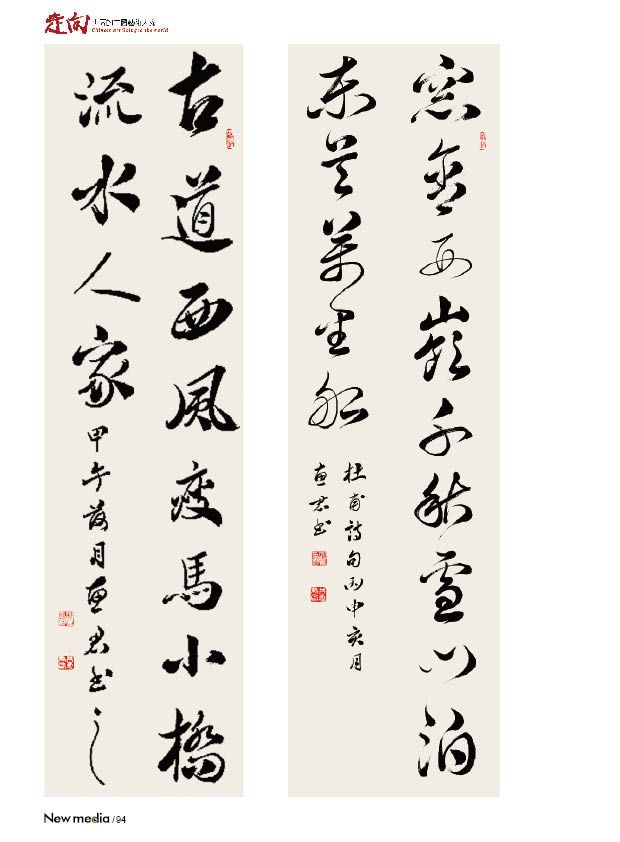 走向
Chinese art Going to the world
窓含西嶺千秋雪門泊
東吳萬里船
杜甫詩句丙申亥月
惠君书
古道西風瘦馬小橋
流水人家 甲午 月惠君书之
New media / 94